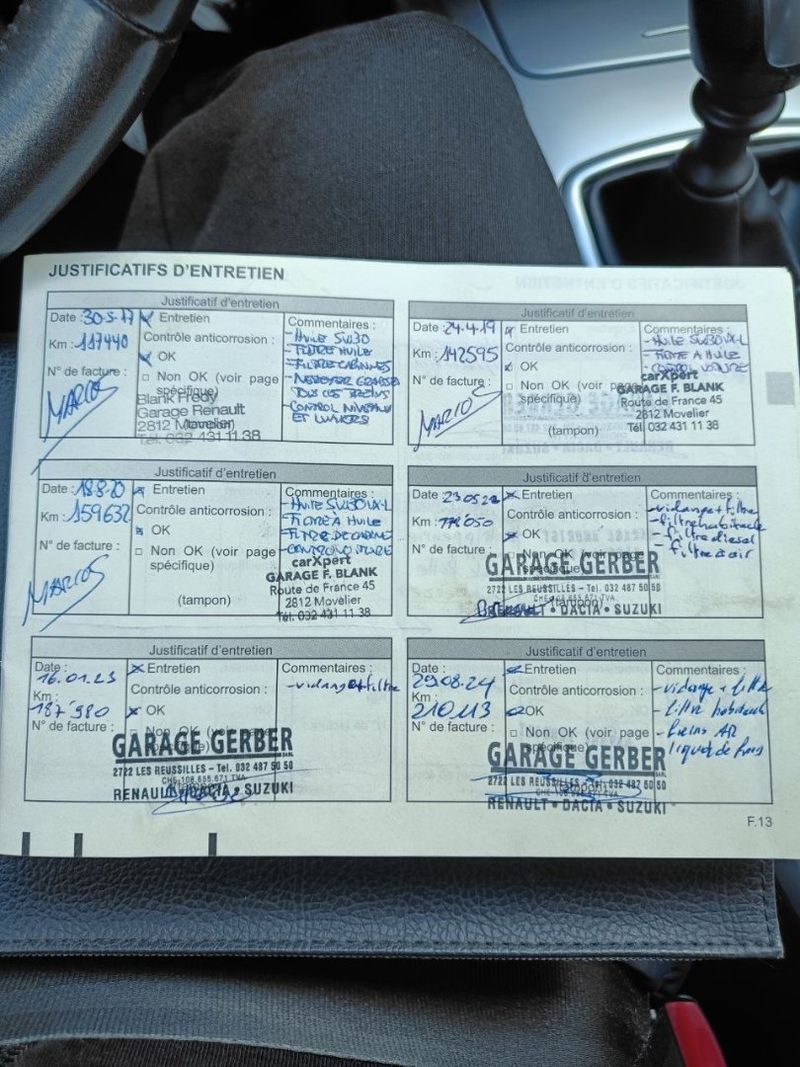 JUSTIFICATIFS D'ENTRETIEN
Justificatif d'entretien
Date : 30-5-17
Entretien
Commentaires :
Km : 117440
Contrôle anticorrosion :
- HUILE 5W30
- FILTRE HUILE
OK
- FILTRE CABINNES
N° de facture :
Non OK (voir page spécifique)
- NETTOYER GRAISSER
TOUS LES FREINS
- CONTROL NIVEAUX
ET LUMIERS
MARIOS
Blank Fredy
Garage Renault
2812 Movelier
(tampon)
Tél. 032 431 11 38
Justificatif d'entretien
Date : 24.4.19
Entretien
Commentaires :
Km : 142595
Contrôle anticorrosion :
- HUILE 5W30VL-L
- FILTRE A HUILE
OK
- CONTROL VOITURE
N° de facture :
Non OK (voir page spécifique)
MARIOS
carXpert
GARAGE F. BLANK
Route de France 45
2812 Movelier
(tampon)
Tél. 032 431 11 38
Justificatif d'entretien
Date : 18-8-20
Entretien
Commentaires :
Km : 159632
Contrôle anticorrosion :
- FILTRE A HUILE
OK
N° de facture :
Non OK (voir page
spécifique)
MARIOS
carXpert
GARAGE F. BLANK
Route de France 45
(tampon)
2812 Movelier
Tél. 032 431 11 38
Justificatif d'entretien
Date : 23.05.22
Entretien
Commentaires :
Km :
Contrôle anticorrosion :
- vidange + filtre
- filtre habitacle
OK
- filtre diesel
N° de facture :
Non OK (voir page spécifique)
- filtre à air
GARAGE GERBER
2722 LES REUSSILLES - Tel. 032 487 50 50
CHE-108.655.671 TVA
(tampon)
RENAULT • DACIA • SUZUKI
Justificatif d'entretien
Date : 16.01.23
Entretien
Commentaires :
Km : 187'980
Contrôle anticorrosion :
- vidange + filtre
OK
N° de facture :
Non OK (voir page
spécifique)
GARAGE GERBER
2722 LES REUSSILLES - Tel. 032 487 50 50
CHE-108.655.671 TVA
RENAULT • DACIA • SUZUKI
Justificatif d'entretien
Date : 29.08.24
Entretien
Commentaires :
Km : 210113
Contrôle anticorrosion :
- vidange + filtre
- filtre habitacle
OK
- freins AR
N° de facture :
Non OK (voir page
spécifique)
liquide de freins
GARAGE GERBER
2722 LES REUSSILLES - Tel. 032 487 50 50
CHE-108.655.671 TVA
RENAULT • DACIA • SUZUKI
F.13